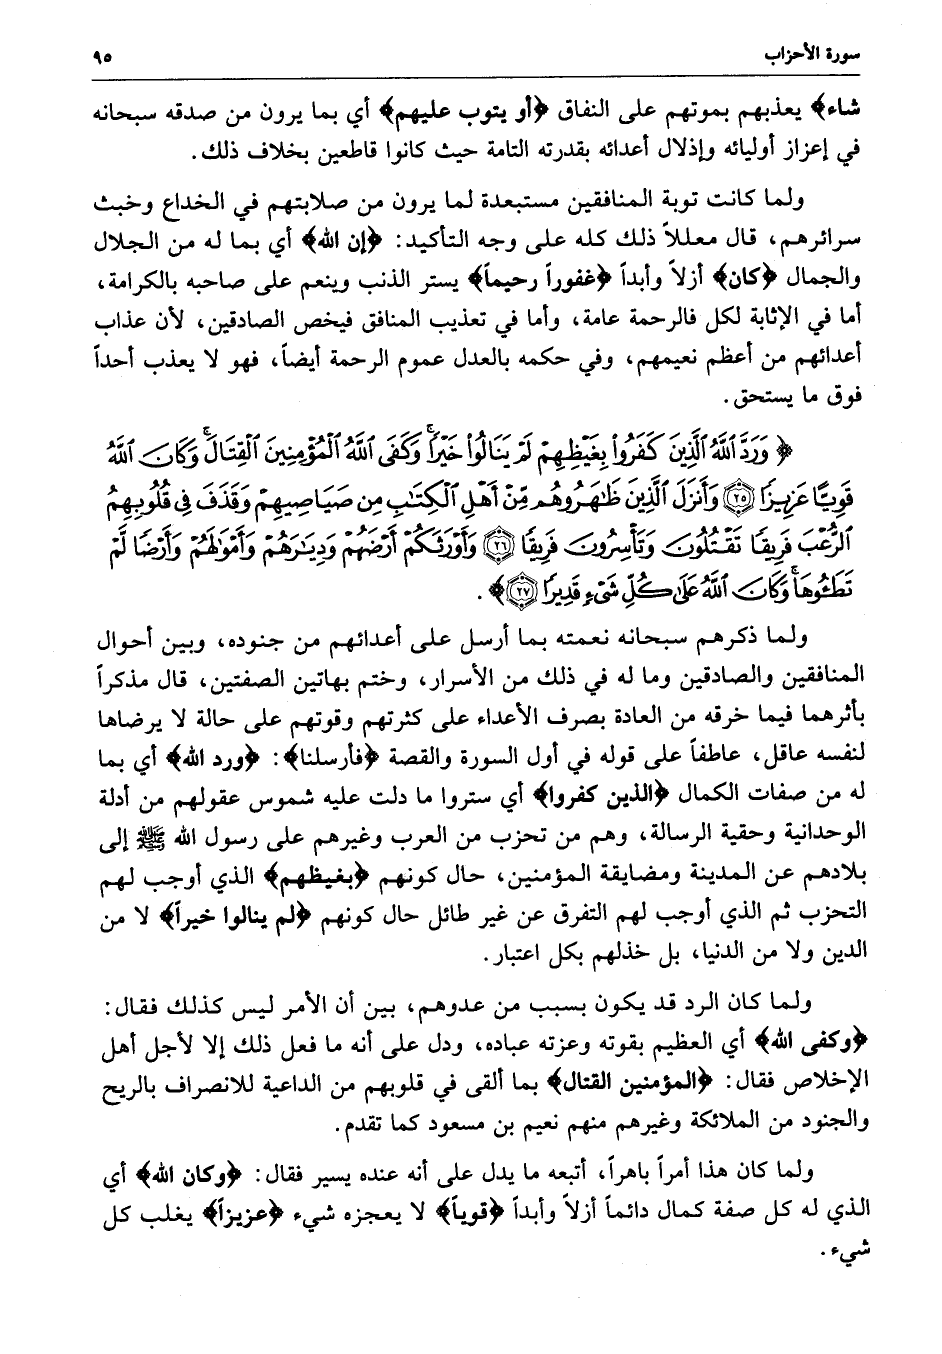 سورة الأحزاب ٩٥
شاء﴾ يعذبهم بموتهم على النفاق ﴿أو يتوب عليهم﴾ أي بما يرون من صدقه سبحانه
في إعزاز أوليائه وإذلال أعدائه بقدرته التامة حيث كانوا قاطعين بخلاف ذلك.
ولما كانت توبة المنافقين مستبعدة لما يرون من صلابتهم في الخداع وخبث
سرائرهم، قال معللاً ذلك كله على وجه التأكيد: ﴿إن الله﴾ أي بما له من الجلال
والجمال ﴿كان﴾ أزلاً وأبداً ﴿غفوراً رحيماً﴾ يستر الذنب وينعم على صاحبه بالكرامة،
أما في الإثابة لكل فالرحمة عامة، وأما في تعذيب المنافق فيخص الصادقين، لأن عذاب
أعدائهم من أعظم نعيمهم، وفي حكمه بالعدل عموم الرحمة أيضاً، فهو لا يعذب أحداً
فوق ما يستحق.
﴿وَرَدَّ ٱللَّهُ ٱلَّذِينَ كَفَرُواْ بِغَيْظِهِمْ لَمْ يَنَالُواْ خَيْرًاۚ وَكَفَى ٱللَّهُ ٱلْمُؤْمِنِينَ ٱلْقِتَالَۚ وَكَانَ ٱللَّهُ
قَوِيًّا عَزِيزًا ٢٥ وَأَنزَلَ ٱلَّذِينَ ظَٰهَرُوهُم مِّنْ أَهْلِ ٱلْكِتَٰبِ مِن صَيَاصِيهِمْ وَقَذَفَ فِى قُلُوبِهِمُ
ٱلرُّعْبَ فَرِيقًا تَقْتُلُونَ وَتَأْسِرُونَ فَرِيقًا ٢٦ وَأَوْرَثَكُمْ أَرْضَهُمْ وَدِيَٰرَهُمْ وَأَمْوَٰلَهُمْ وَأَرْضًا لَّمْ
تَطَـُٔوهَاۚ وَكَانَ ٱللَّهُ عَلَىٰ كُلِّ شَىْءٍ قَدِيرًا ٢٧﴾.
ولما ذكرهم سبحانه نعمته بما أرسل على أعدائهم من جنوده، وبين أحوال
المنافقين والصادقين وما له في ذلك من الأسرار، وختم بهاتين الصفتين، قال مذكراً
بأثرهما فيما خرقه من العادة بصرف الأعداء على كثرتهم وقوتهم على حالة لا يرضاها
لنفسه عاقل، عاطفاً على قوله في أول السورة والقصة ﴿فأرسلنا﴾: ﴿ورد الله﴾ أي بما
له من صفات الكمال ﴿الذين كفروا﴾ أي ستروا ما دلت عليه شموس عقولهم من أدلة
الوحدانية وحقية الرسالة، وهم من تحزب من العرب وغيرهم على رسول الله ﷺ إلى
بلادهم عن المدينة ومضايقة المؤمنين، حال كونهم ﴿بغيظهم﴾ الذي أوجب لهم
التحزب ثم الذي أوجب لهم التفرق عن غير طائل حال كونهم ﴿لم ينالوا خيراً﴾ لا من
الدين ولا من الدنيا، بل خذلهم بكل اعتبار.
ولما كان الرد قد يكون بسبب من عدوهم، بين أن الأمر ليس كذلك فقال:
﴿وكفى الله﴾ أي العظيم بقوته وعزته عباده، ودل على أنه ما فعل ذلك إلا لأجل أهل
الإخلاص فقال: ﴿المؤمنين القتال﴾ بما ألقى في قلوبهم من الداعية للانصراف بالريح
والجنود من الملائكة وغيرهم منهم نعيم بن مسعود كما تقدم.
ولما كان هذا أمراً باهراً، أتبعه ما يدل على أنه عنده يسير فقال: ﴿وكان الله﴾ أي
الذي له كل صفة كمال دائماً أزلاً وأبداً ﴿قوياً﴾ لا يعجزه شيء ﴿عزيزاً﴾ يغلب كل
شيء.